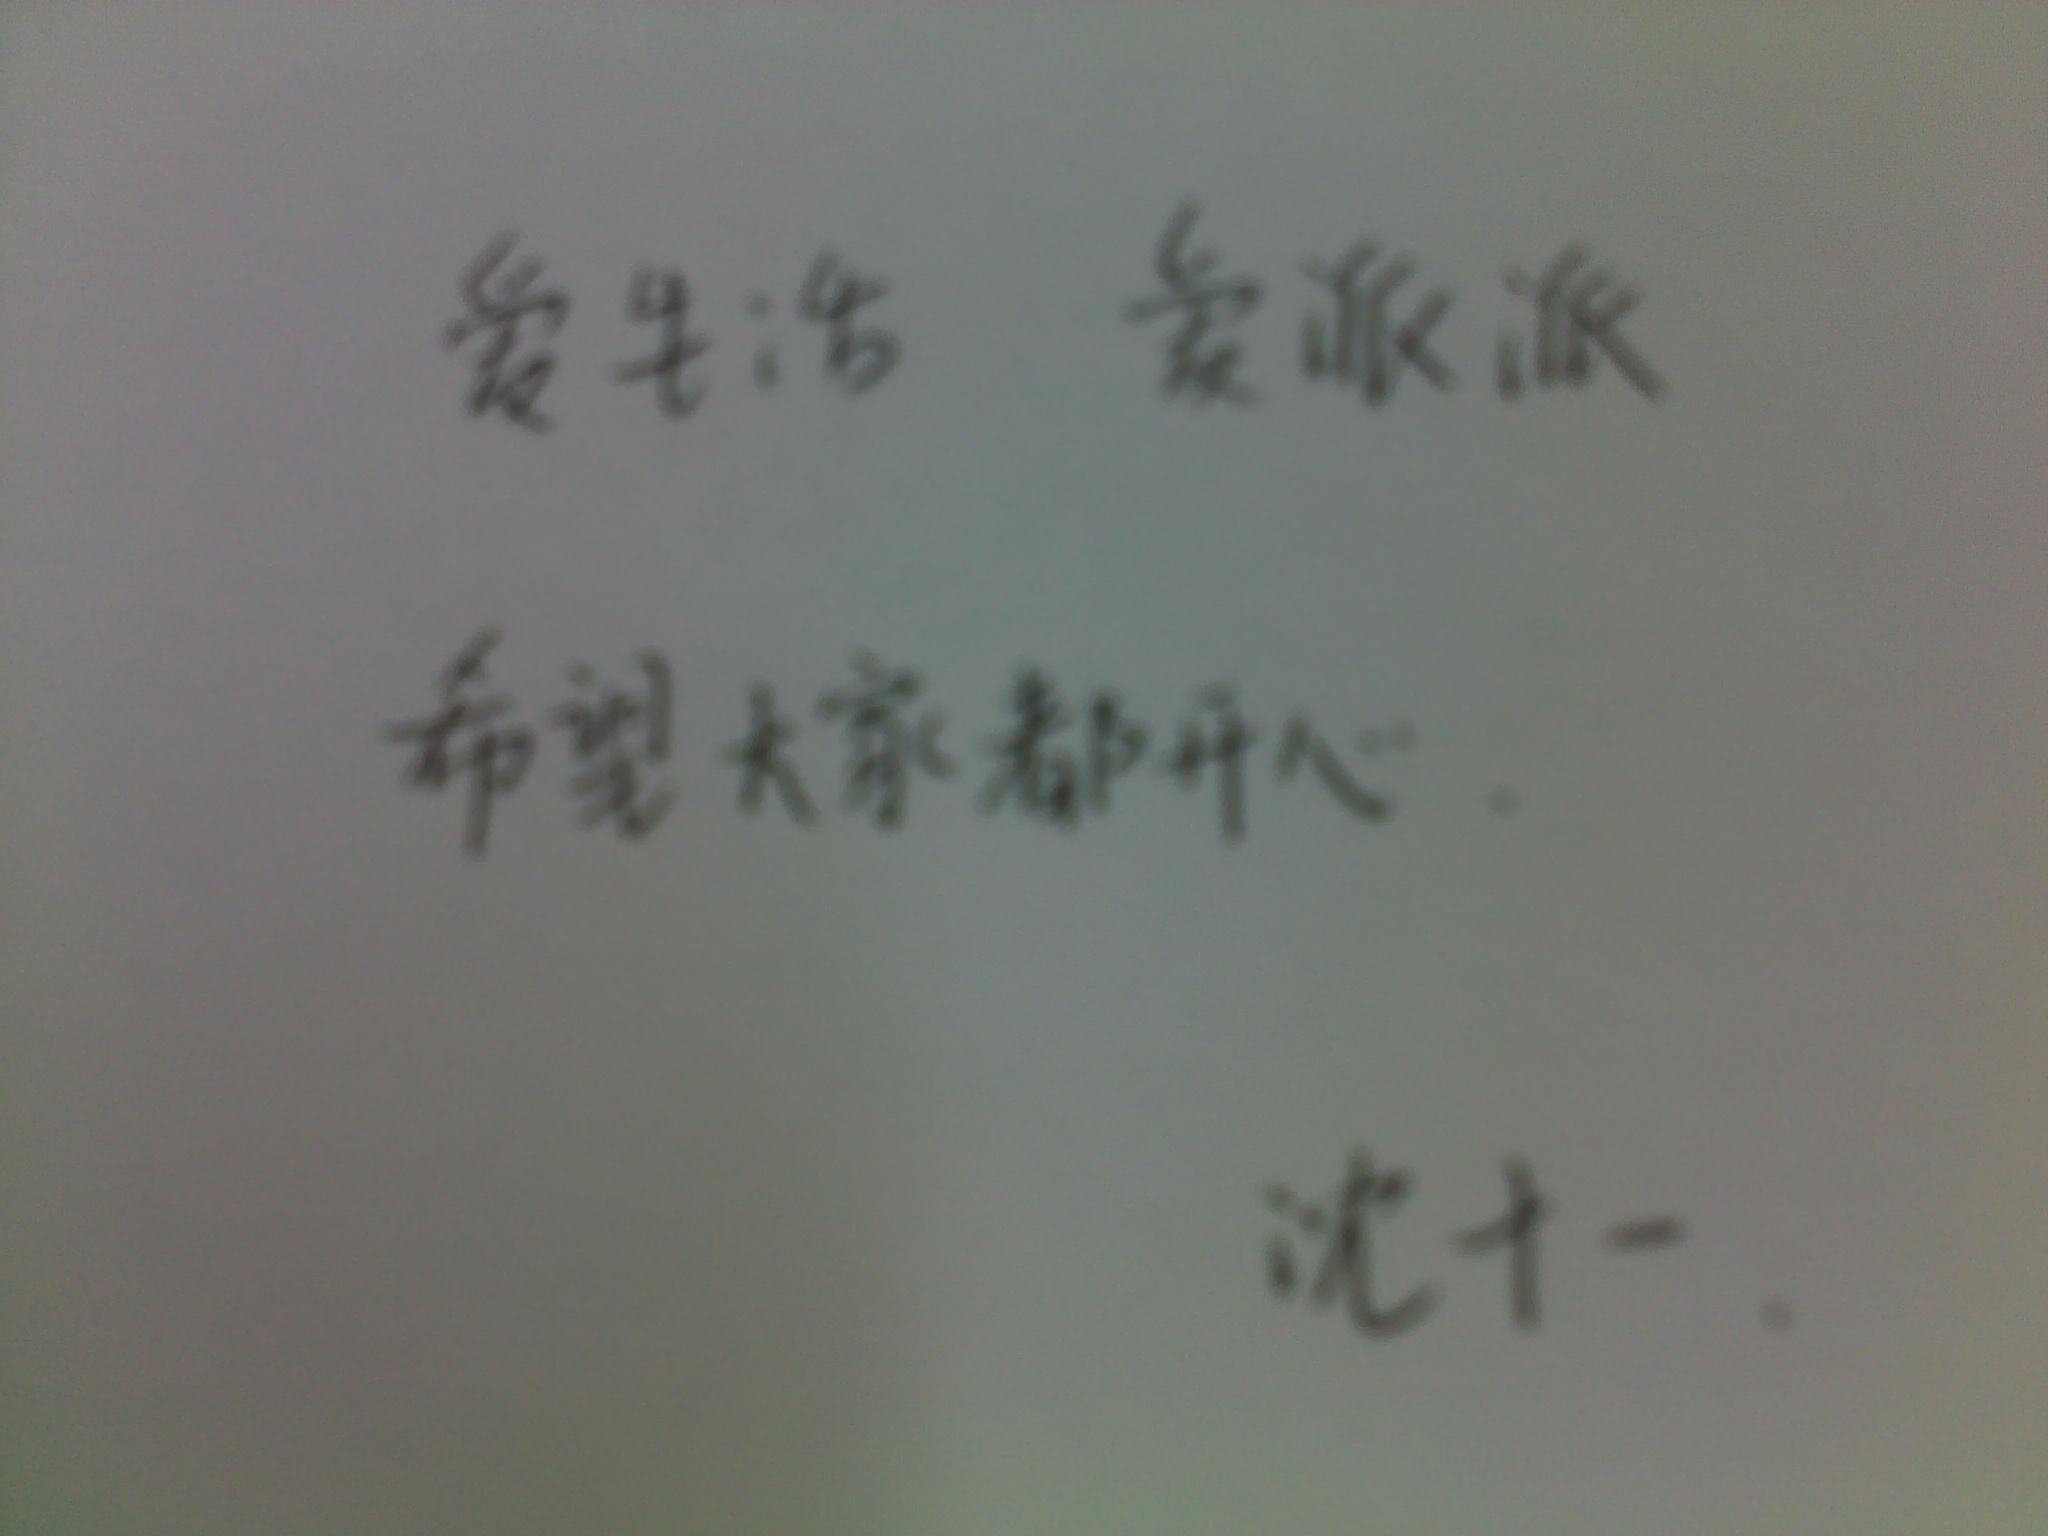 爱生活 爱派派
希望大家都开心.
沈十一.